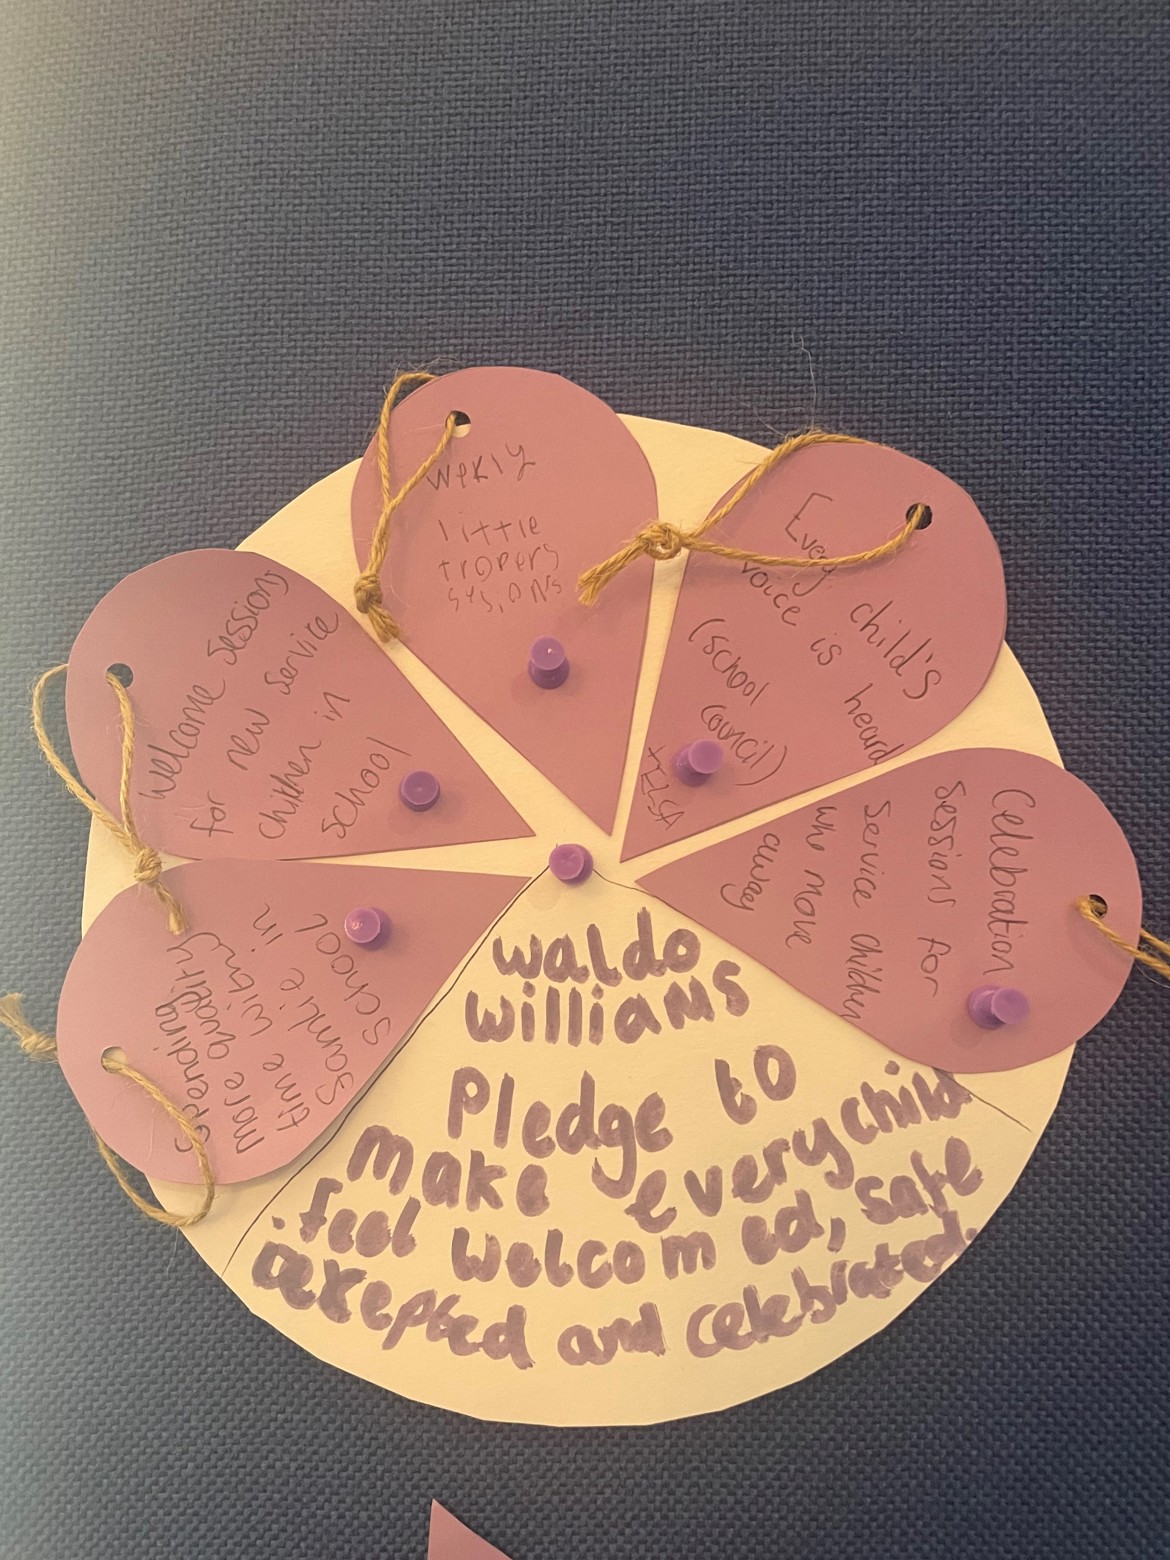 wekly
little
tropers
sysions
Every child's
voice is heard
(school
council)
+ELSA
Celebration
Sessions for
Service children
who move
away
Welcome sessions
for new service
children in
school
Spending
more quality
time with
samlie in
school
waldo
williams
Pledge to
make every child
feel welcomed, safe
accepted and celebrated.